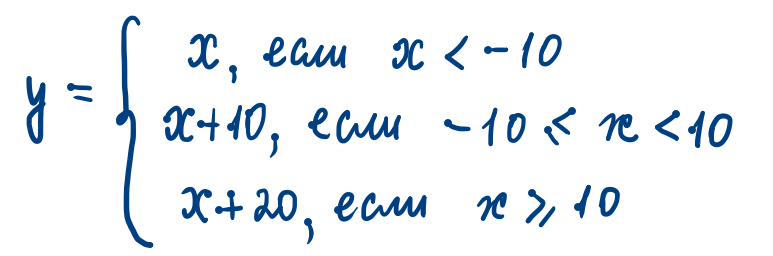 y = { x, если x < -10
x+10, если -10 ⩽ x < 10
x+20, если x ⩾ 10